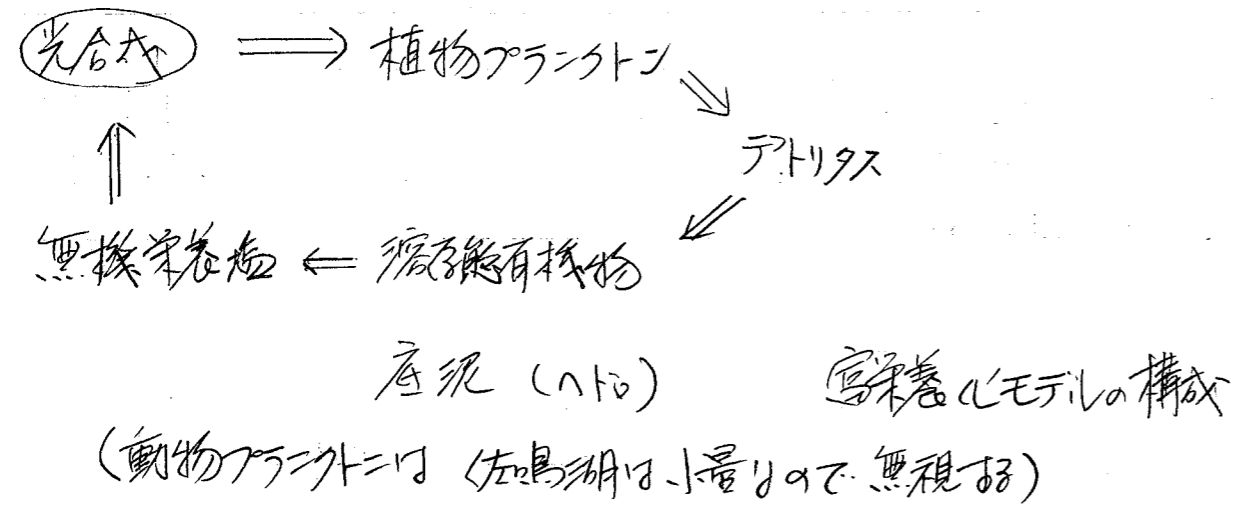 光合成 ⇒ 植物プランクトン
デトリタス
無機栄養塩 ⇐ 溶存態有機物
底泥 (ヘドロ) 富栄養化モデルの構成
(動物プランクトンは (佐鳴湖は少量なので無視する)